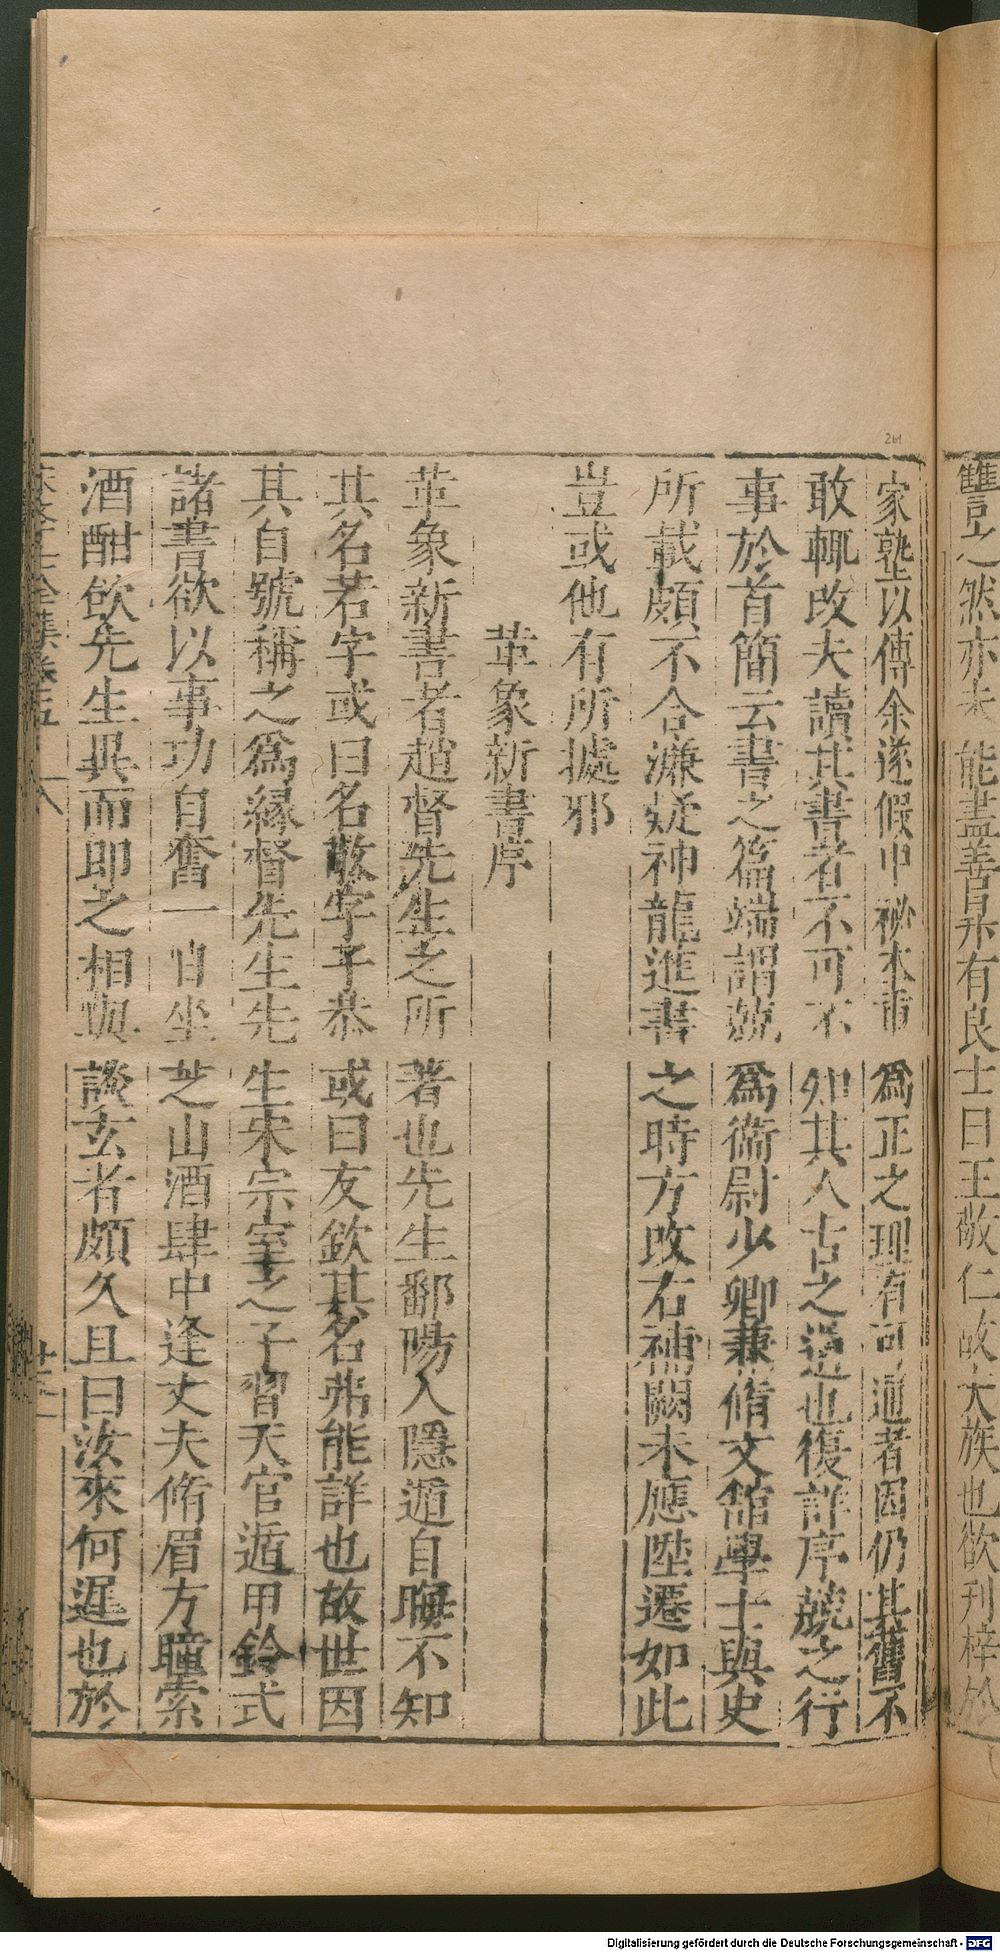 讐之然亦未能盡善果有良士曰王敬仁故大族也欲刊梓於
家塾以傳余遂假中祕本重爲正之理有可通者因仍其舊不
敢輒改夫讀其書者不可不知其人古之道也復詳序兢之行
事於首簡云書之篇端謂兢爲衞尉少卿兼脩文館學士與史
所載頗不合濂疑神龍進書之時方改右補闕未應陞遷如此
豈或他有所據邪
革象新書序
革象新書者趙督先生之所著也先生鄱陽人隱遁自晦不知
其名若字或曰名敬字子恭或曰友欽其名弗能詳也故世因
其自號稱之爲緣督先生先生宋宗室之子習天官遁甲鈐式
諸書欲以事功自奮一日坐芝山酒肆中逢丈夫脩眉方瞳索
酒酣飲先生異而即之相與談玄者頗久且曰汝來何遲也於
261
Digitalisierung gefördert durch die Deutsche Forschungsgemeinschaft - DFG